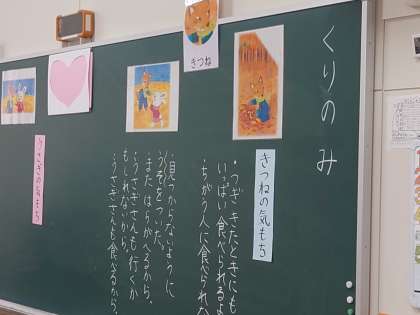 くりのみ
きつね
きつねの気もち
・つぎきたときにも
いっぱい食べられるよ
・ちがう人に食べられな
・見つからないように
・うそをついた。
・またはらがへるから。
・うさぎさんも行くか
もしれないから。
・うさぎさんも食べるから。
うさぎの気もち